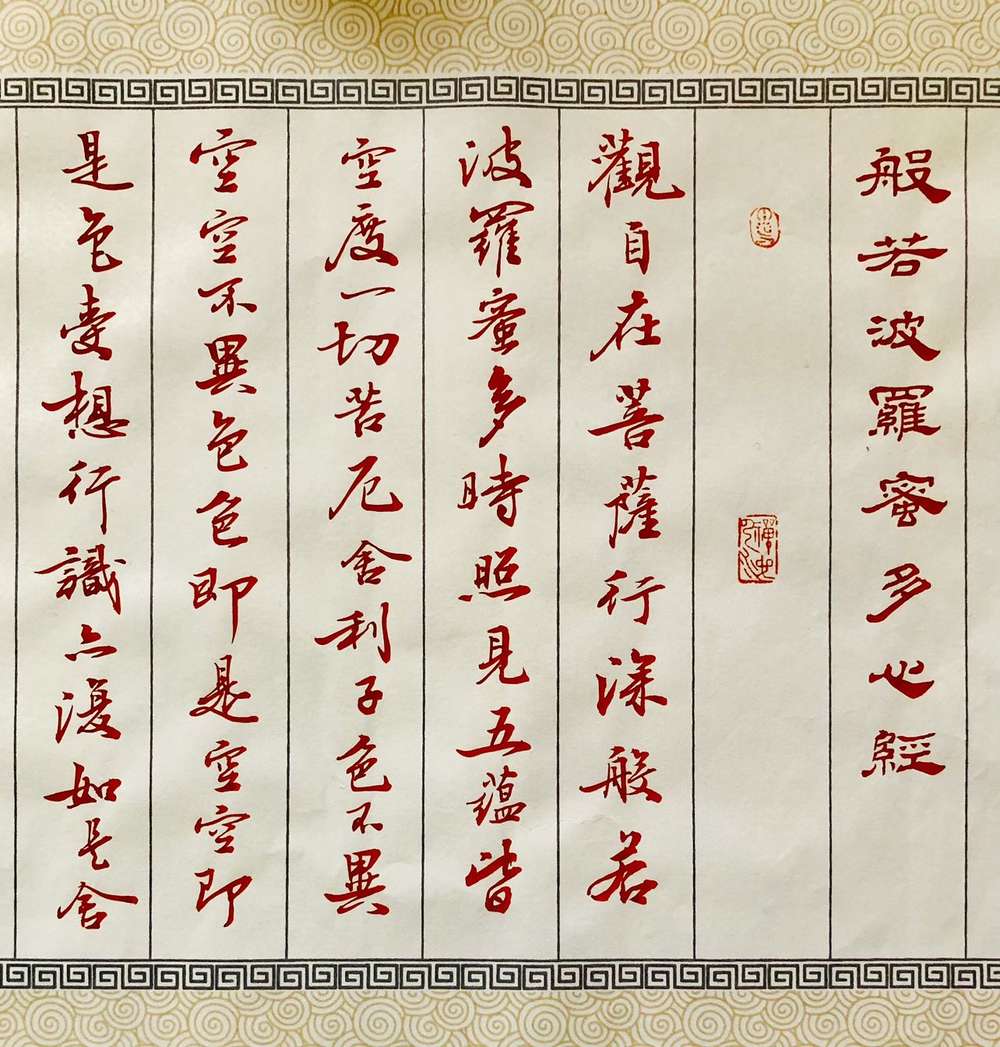 般若波羅蜜多心經
觀自在菩薩行深般若
波羅蜜多時照見五蘊皆
空度一切苦厄舍利子色不異
空空不異色色即是空空即
是色受想行識亦復如是舍